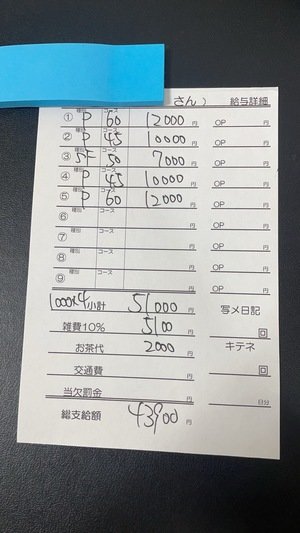 さん） 給与詳細
① 種別 P コース 60 12000 円 OP 円
② 種別 P コース 45 10000 円 OP 円
③ 種別 コース 50 7000 円 OP 円
④ 種別 P コース 45 10000 円 OP 円
⑤ 種別 P コース 60 12000 円 OP 円
⑥ 種別 コース 円 OP 円
⑦ 種別 コース 円 OP 円
⑧ 種別 コース 円 OP 円
⑨ 種別 コース 円 OP 円
1000×4 小計 51000 円 写メ日記
雑費10% 5100 円 回
お茶代 2000 円 キテネ
交通費 円 回
当欠罰金 円 日分
総支給額 43900 円